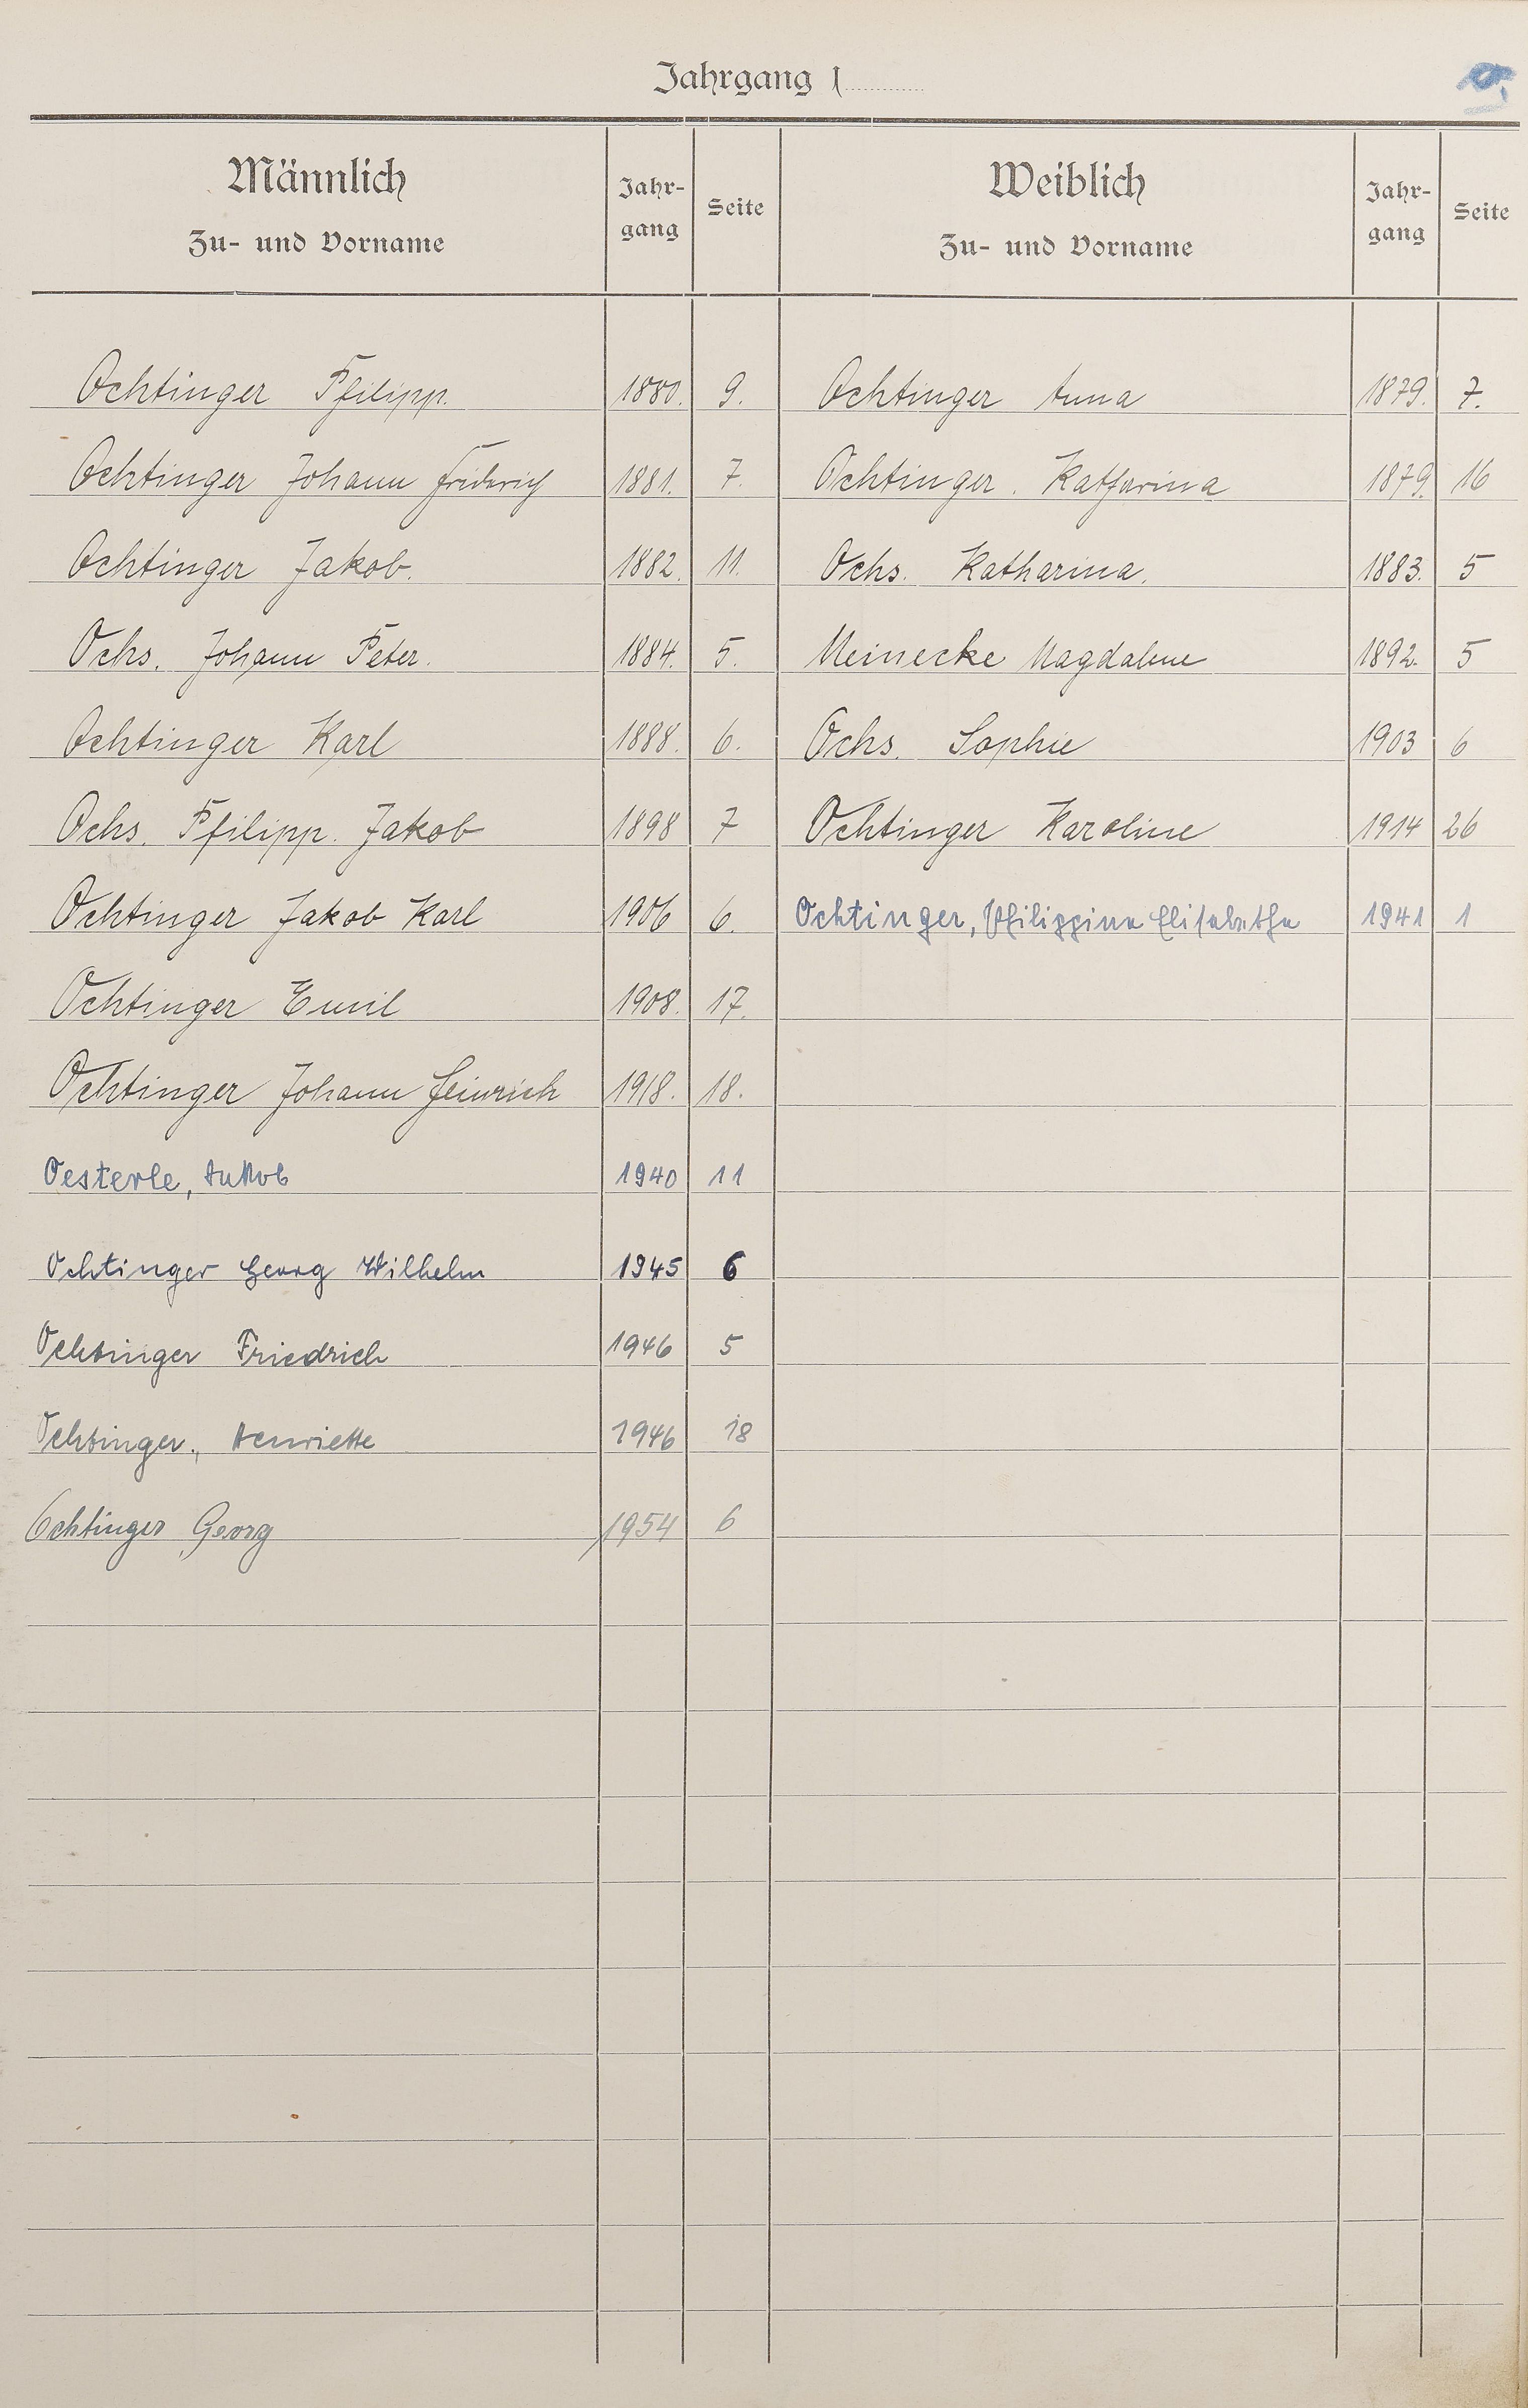 Jahrgang 1
O.
Männlich
Zu- und Vorname
Jahr-
gang
Seite
Weiblich
Zu- und Vorname
Jahr-
gang
Seite
Ochtinger Philipp. 1880. 9. Ochtinger Anna 1879. 7.
Ochtinger Johann Friderich 1881. 7. Ochtinger. Katharina 1879. 16
Ochtinger Jakob. 1882. 11. Ochs. Katharina. 1883. 5
Ochs. Johann Peter. 1884. 5. Meinecke Magdalene 1892. 5
Ochtinger Karl 1888. 6. Ochs. Sophie 1903 6
Ochs. Philipp. Jakob 1898 7 Ochtinger Karoline 1914 26
Ochtinger Jakob Karl 1906 6. Ochtinger, Philippina Elisabetha 1941 1
Ochtinger Emil 1908. 17.
Ochtinger Johann Heinrich 1918. 18.
Oesterle, Jakob 1940 11
Ochtinger Georg Wilhelm 1945 6
Ochtinger Friedrich 1946 5
Ochtinger, Henriette 1946 18
Ochtinger Georg 1954 6